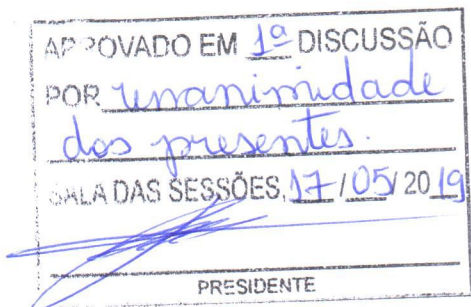 APROVADO EM 1ª DISCUSSÃO
POR unanimidade
dos presentes.
SALA DAS SESSÕES, 17 / 05 / 20 19
PRESIDENTE